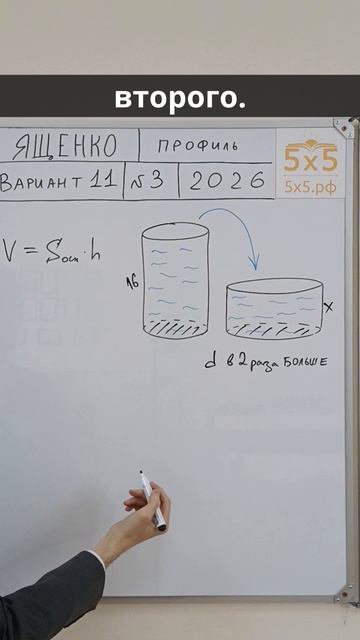 второго.
ЯЩЕНКО ПРОФИЛЬ
ВАРИАНТ 11 №3 2026
5х5
5х5.рф
V = Sосн · h
16
x
d в 2 раза БОЛЬШЕ